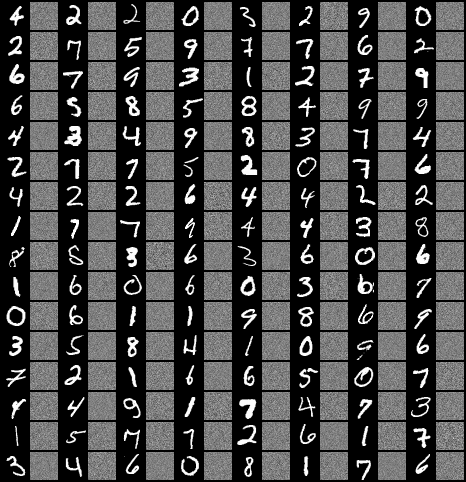 4 2 2 0 3 2 9 0
2 7 5 9 7 7 6 2
6 7 9 3 1 2 7 9
6 5 8 5 8 4 9 9
4 3 4 9 8 3 7 4
2 7 7 5 2 0 7 6
4 2 2 6 4 4 2 2
1 7 7 9 4 4 3 8
8 5 3 6 3 6 0 6
1 6 0 6 0 3 6 7
0 6 1 1 9 8 6 9
3 5 8 4 1 0 9 6
7 2 1 6 6 5 0 7
4 4 9 1 7 4 7 3
1 5 7 7 2 6 1 7
3 4 6 0 8 1 7 6